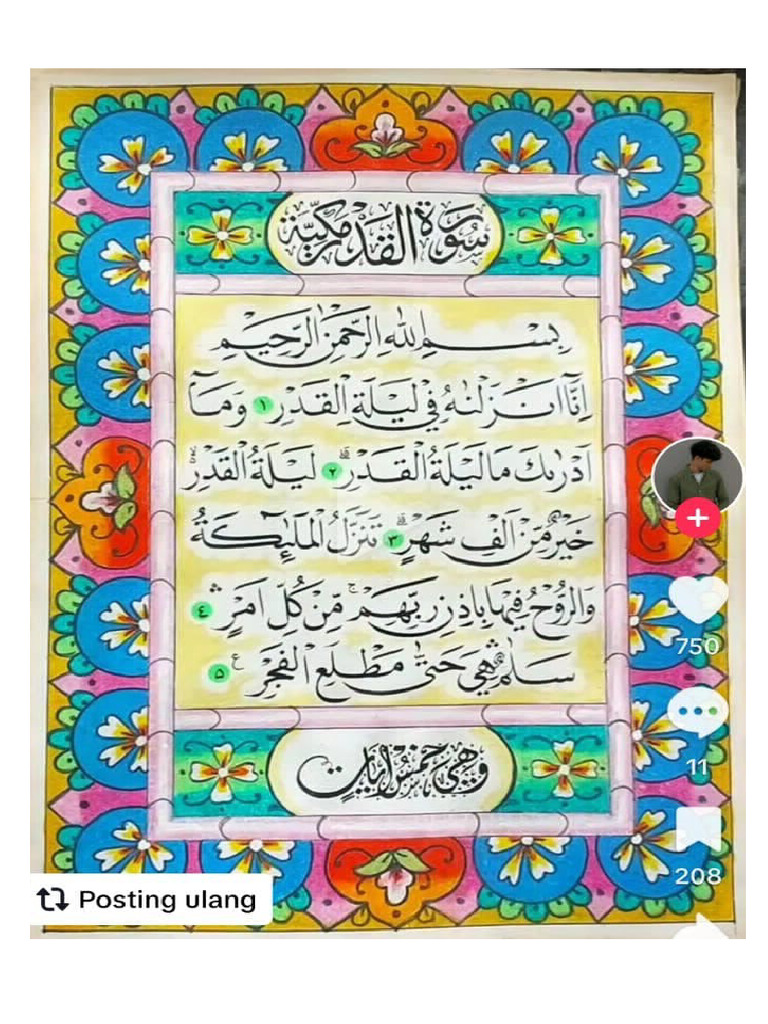 سُورَةُ الْقَدْرِ مَكِّيَّة
بِسْمِ اللهِ الرَّحْمٰنِ الرَّحِيْمِ
اِنَّآ اَنْزَلْنٰهُ فِيْ لَيْلَةِ الْقَدْرِ ١ وَمَآ
اَدْرٰىكَ مَا لَيْلَةُ الْقَدْرِۗ ٢ لَيْلَةُ الْقَدْرِ ەۙ
خَيْرٌ مِّنْ اَلْفِ شَهْرٍۗ ٣ تَنَزَّلُ الْمَلٰۤىِٕكَةُ
وَالرُّوْحُ فِيْهَا بِاِذْنِ رَبِّهِمْۚ مِنْ كُلِّ اَمْرٍۛ ٤
سَلٰمٌۛ هِيَ حَتّٰى مَطْلَعِ الْفَجْرِ ࣖ ۵
وَهِيَ خَمْسُ اٰيَاتٍ
750
11
208
Posting ulang